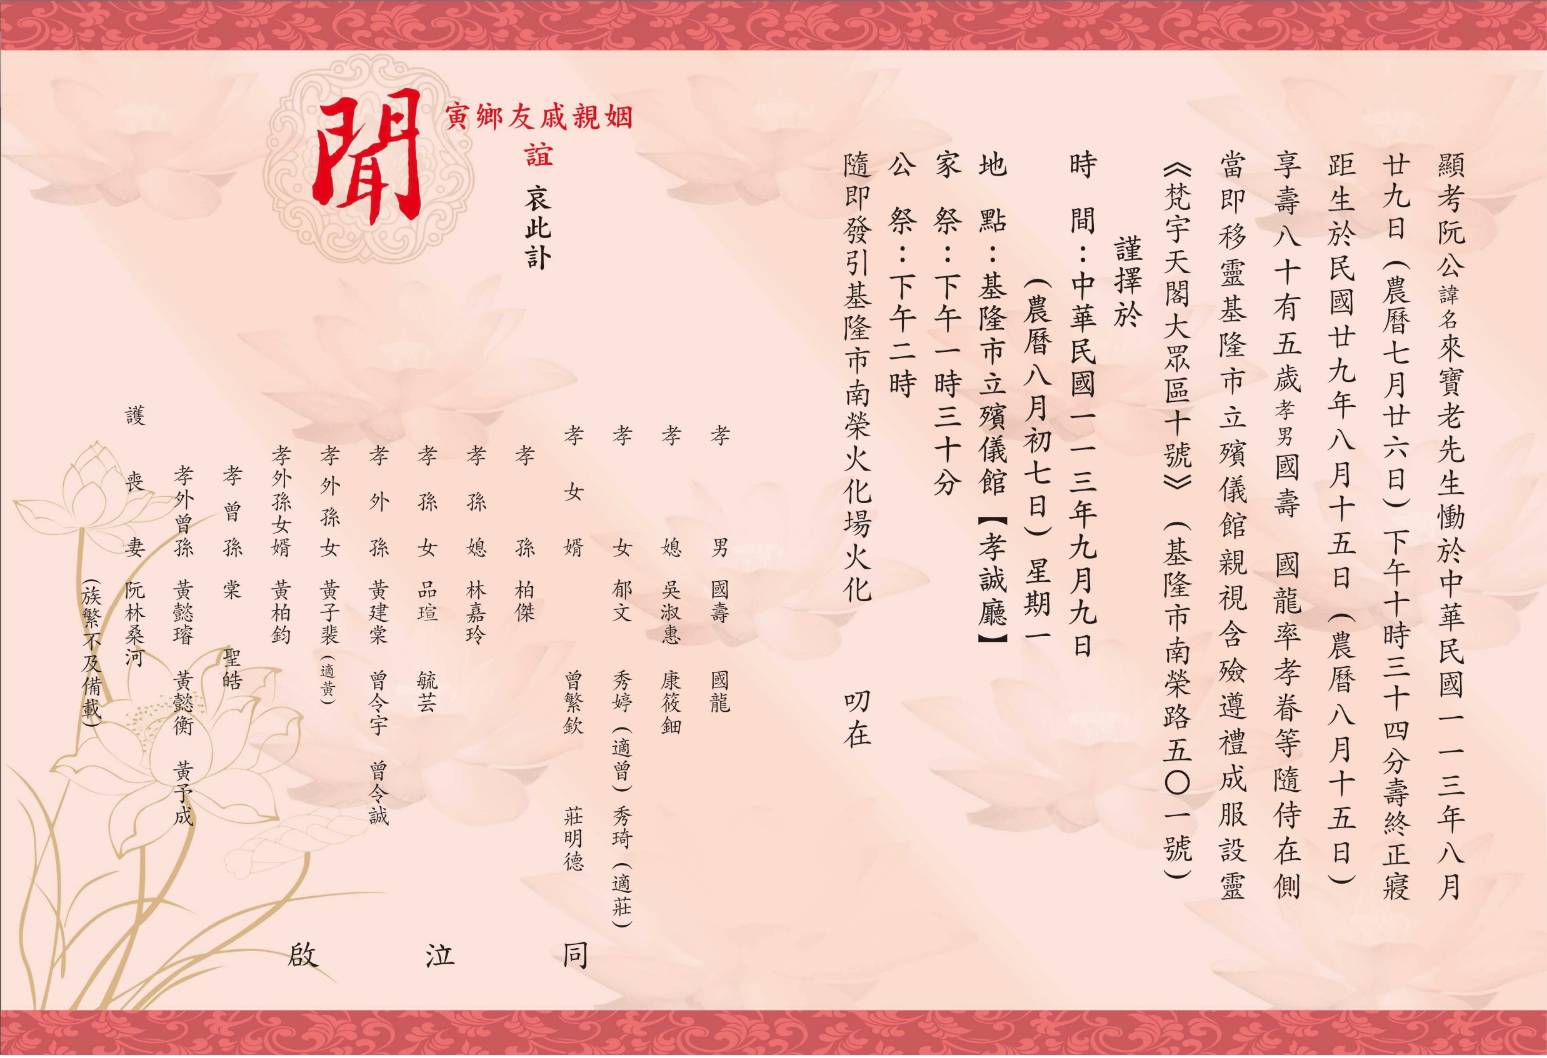 顯考阮公諱名來寶老先生慟於中華民國一一三年八月
廿九日(農曆七月廿六日)下午十時三十四分壽終正寢
距生於民國廿九年八月十五日(農曆八月十五日)
享壽八十有五歲孝男國壽 國龍率孝眷等隨侍在側
當即移靈基隆市立殯儀館親視含殮遵禮成服設靈
《梵宇天閣大眾區十號》(基隆市南榮路五〇一號)
謹擇於
時 間:中華民國一一三年九月九日
(農曆八月初七日)星期一
地 點:基隆市立殯儀館【孝誠廳】
家 祭:下午一時三十分
公 祭:下午二時
隨即發引基隆市南榮火化場火化 叨在
姻親戚友鄉寅
誼 哀此訃
聞
孝男 國壽 國龍
孝媳 吳淑惠 康筱鈿
孝女 郁文 秀婷(適曾) 秀琦(適莊)
孝女婿 曾繁欽 莊明德
孝孫 柏傑
孝孫媳 林嘉玲
孝孫女 品瑄 毓芸
孝外孫 黃建棠 曾令宇 曾令誠
孝外孫女 黃子裴(適黃)
孝外孫女婿 黃柏鈞
孝曾孫 棠 聖皓
孝外曾孫 黃懿璿 黃懿衡 黃予成
護喪妻 阮林桑河
(族繁不及備載)
同泣啟